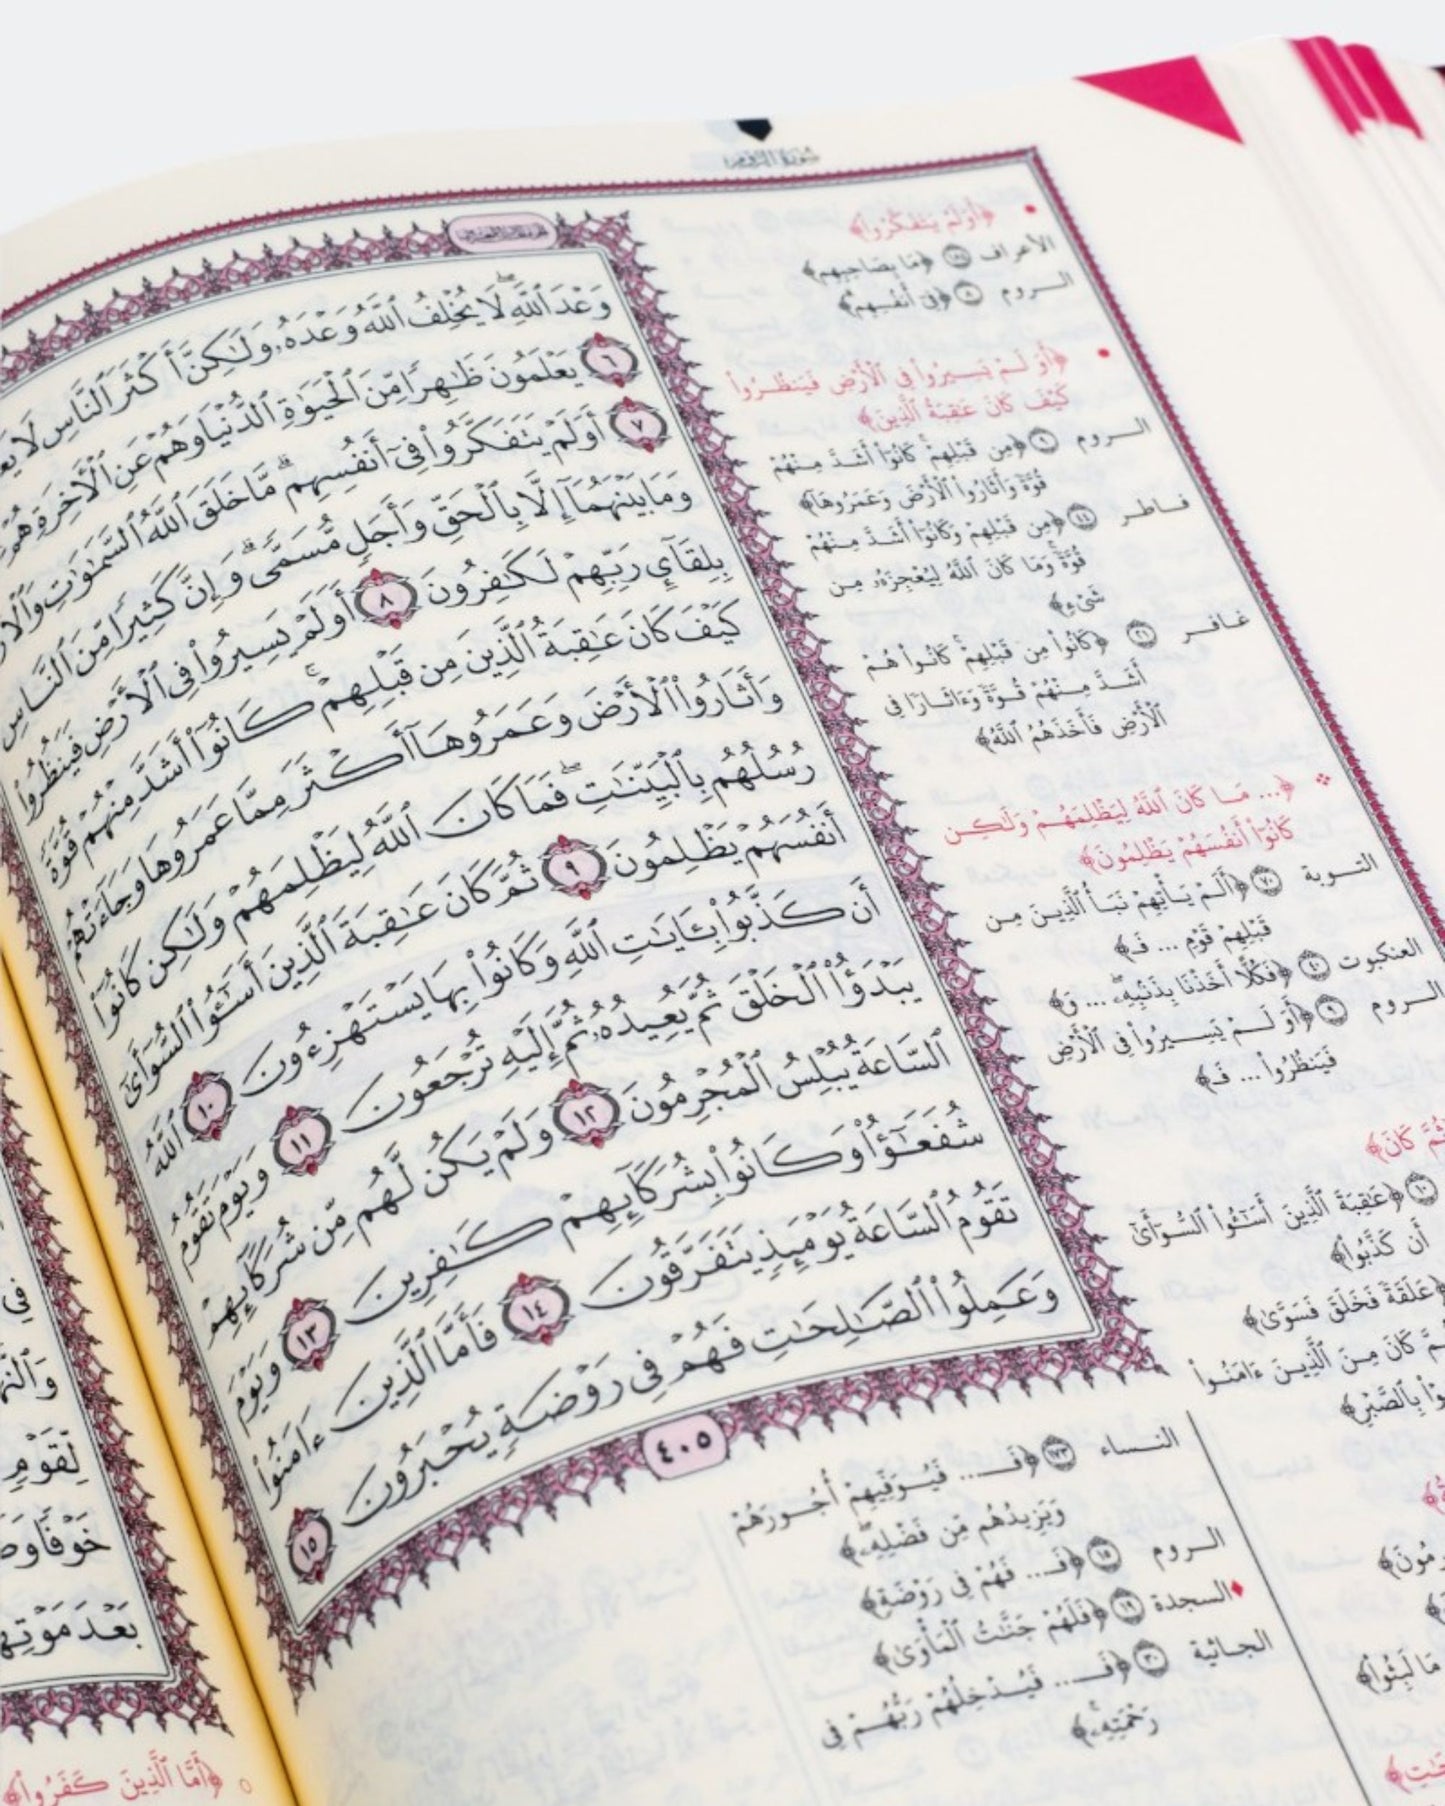 سورة الروم
وَعْدَ ٱللَّهِ لَا يُخْلِفُ ٱللَّهُ وَعْدَهُۥ وَلَٰكِنَّ أَكْثَرَ ٱلنَّاسِ لَا
٦ يَعْلَمُونَ ظَٰهِرًا مِّنَ ٱلْحَيَوٰةِ ٱلدُّنْيَا وَهُمْ عَنِ ٱلْأَخِرَةِ هُمْ
٧ أَوَلَمْ يَتَفَكَّرُوا۟ فِىٓ أَنفُسِهِم ۗ مَّا خَلَقَ ٱللَّهُ ٱلسَّمَٰوَٰتِ
وَمَا بَيْنَهُمَآ إِلَّا بِٱلْحَقِّ وَأَجَلٍ مُّسَمًّى ۗ وَإِنَّ كَثِيرًا مِّنَ ٱلنَّاسِ
بِلِقَآئِ رَبِّهِمْ لَكَٰفِرُونَ ٨ أَوَلَمْ يَسِيرُوا۟ فِى ٱلْأَرْضِ فَيَنظُرُوا۟
كَيْفَ كَانَ عَٰقِبَةُ ٱلَّذِينَ مِن قَبْلِهِمْ ۚ كَانُوٓا۟ أَشَدَّ مِنْهُمْ قُوَّةً
وَأَثَارُوا۟ ٱلْأَرْضَ وَعَمَرُوهَآ أَكْثَرَ مِمَّا عَمَرُوهَا وَجَآءَتْهُمْ
رُسُلُهُم بِٱلْبَيِّنَٰتِ ۖ فَمَا كَانَ ٱللَّهُ لِيَظْلِمَهُمْ وَلَٰكِن كَانُوٓا۟
أَنفُسَهُمْ يَظْلِمُونَ ٩ ثُمَّ كَانَ عَٰقِبَةَ ٱلَّذِينَ أَسَٰٓـُٔوا۟ ٱلسُّوٓأَىٰٓ
أَن كَذَّبُوا۟ بِـَٔايَٰتِ ٱللَّهِ وَكَانُوا۟ بِهَا يَسْتَهْزِءُونَ ١٠ ٱللَّهُ
يَبْدَؤُا۟ ٱلْخَلْقَ ثُمَّ يُعِيدُهُۥ ثُمَّ إِلَيْهِ تُرْجَعُونَ ١١ وَيَوْمَ تَقُومُ
ٱلسَّاعَةُ يُبْلِسُ ٱلْمُجْرِمُونَ ١٢ وَلَمْ يَكُن لَّهُم مِّن شُرَكَآئِهِمْ
شُفَعَٰٓؤُا۟ وَكَانُوا۟ بِشُرَكَآئِهِمْ كَٰفِرِينَ ١٣ وَيَوْمَ
تَقُومُ ٱلسَّاعَةُ يَوْمَئِذٍ يَتَفَرَّقُونَ ١٤ فَأَمَّا ٱلَّذِينَ ءَامَنُوا۟
وَعَمِلُوا۟ ٱلصَّٰلِحَٰتِ فَهُمْ فِى رَوْضَةٍ يُحْبَرُونَ ١٥
٤٠٥
﴿أَوَلَمْ يَتَفَكَّرُوا۟﴾
الأعراف ١٨٤ ﴿مَا بِصَاحِبِهِم﴾
الروم ٨ ﴿فِىٓ أَنفُسِهِم﴾
﴿أَوَلَمْ يَسِيرُوا۟ فِى ٱلْأَرْضِ فَيَنظُرُوا۟
كَيْفَ كَانَ عَٰقِبَةُ ٱلَّذِينَ﴾
الروم ٩ ﴿مِن قَبْلِهِمْ كَانُوٓا۟ أَشَدَّ مِنْهُمْ
قُوَّةً وَأَثَارُوا۟ ٱلْأَرْضَ وَعَمَرُوهَآ﴾
فاطر ٤٤ ﴿مِن قَبْلِهِمْ وَكَانُوٓا۟ أَشَدَّ مِنْهُمْ
قُوَّةً وَمَا كَانَ ٱللَّهُ لِيُعْجِزَهُۥ مِن
شَىْءٍ﴾
غافر ٢١ ﴿كَانُوا۟ مِن قَبْلِهِمْ كَانُوا۟ هُمْ
أَشَدَّ مِنْهُمْ قُوَّةً وَءَاثَارًا فِى
ٱلْأَرْضِ فَأَخَذَهُمُ ٱللَّهُ﴾
﴿... مَا كَانَ ٱللَّهُ لِيَظْلِمَهُمْ وَلَٰكِن
كَانُوٓا۟ أَنفُسَهُمْ يَظْلِمُونَ﴾
التوبة ٧٠ ﴿أَلَمْ يَأْتِهِمْ نَبَأُ ٱلَّذِينَ مِن
قَبْلِهِمْ قَوْمِ ... فَـ﴾
العنكبوت ٤٠ ﴿فَكُلًّا أَخَذْنَا بِذَنۢبِهِۦ ... وَ﴾
الروم ٩ ﴿أَوَلَمْ يَسِيرُوا۟ فِى ٱلْأَرْضِ
فَيَنظُرُوا۟ ... فَـ﴾
ثُمَّ كَانَ﴾
١٠ ﴿عَٰقِبَةَ ٱلَّذِينَ أَسَٰٓـُٔوا۟ ٱلسُّوٓأَىٰٓ
أَن كَذَّبُوا۟﴾
﴿عَلَقَةً فَخَلَقَ فَسَوَّىٰ﴾
كَانَ مِنَ ٱلَّذِينَ ءَامَنُوا۟
بِٱلصَّبْرِ﴾
النساء ١٧٣ ﴿فَـ... فَيُوَفِّيهِمْ أُجُورَهُمْ
وَيَزِيدُهُم مِّن فَضْلِهِۦ﴾
الروم ١٥ ﴿فَـ... فَهُمْ فِى رَوْضَةٍ﴾
السجدة ١٩ ﴿فَلَهُمْ جَنَّٰتُ ٱلْمَأْوَىٰ﴾
الجاثية ٣٠ ﴿فَـ... فَيُدْخِلُهُمْ رَبُّهُمْ فِى
رَحْمَتِهِۦ﴾
مَا لَبِثُوا۟﴾
فِى
لِّقَوْمٍ
خَوْفًا
بَعْدَ مَوْتِهَا
﴿أَمَّا ٱلَّذِينَ كَفَرُوا۟﴾